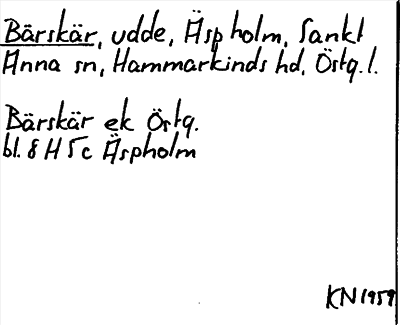 Bärskär, udde, Äspholm, Sankt
Anna sn, Hammarkinds hd, Östg.l.
Bärskär ek Östg.
bl. 8 H 5 c Äspholm
KN 1959